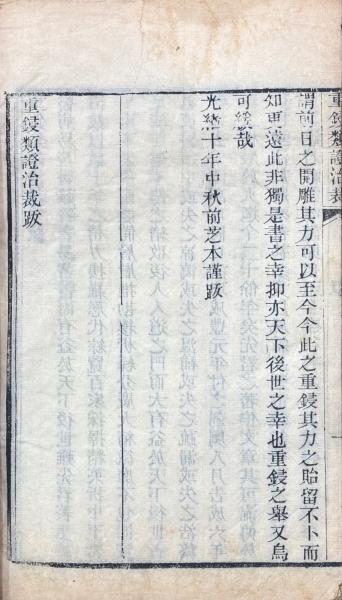 重鋟類證治裁
謂前日之開雕其力可以至今今此之重鋟其力之貽留不卜而
知更遠此非獨是書之幸抑亦天下後世之幸也重鋟之舉又烏
可緩哉
光緒十年中秋前芝本謹跋
重鋟類證治裁跋